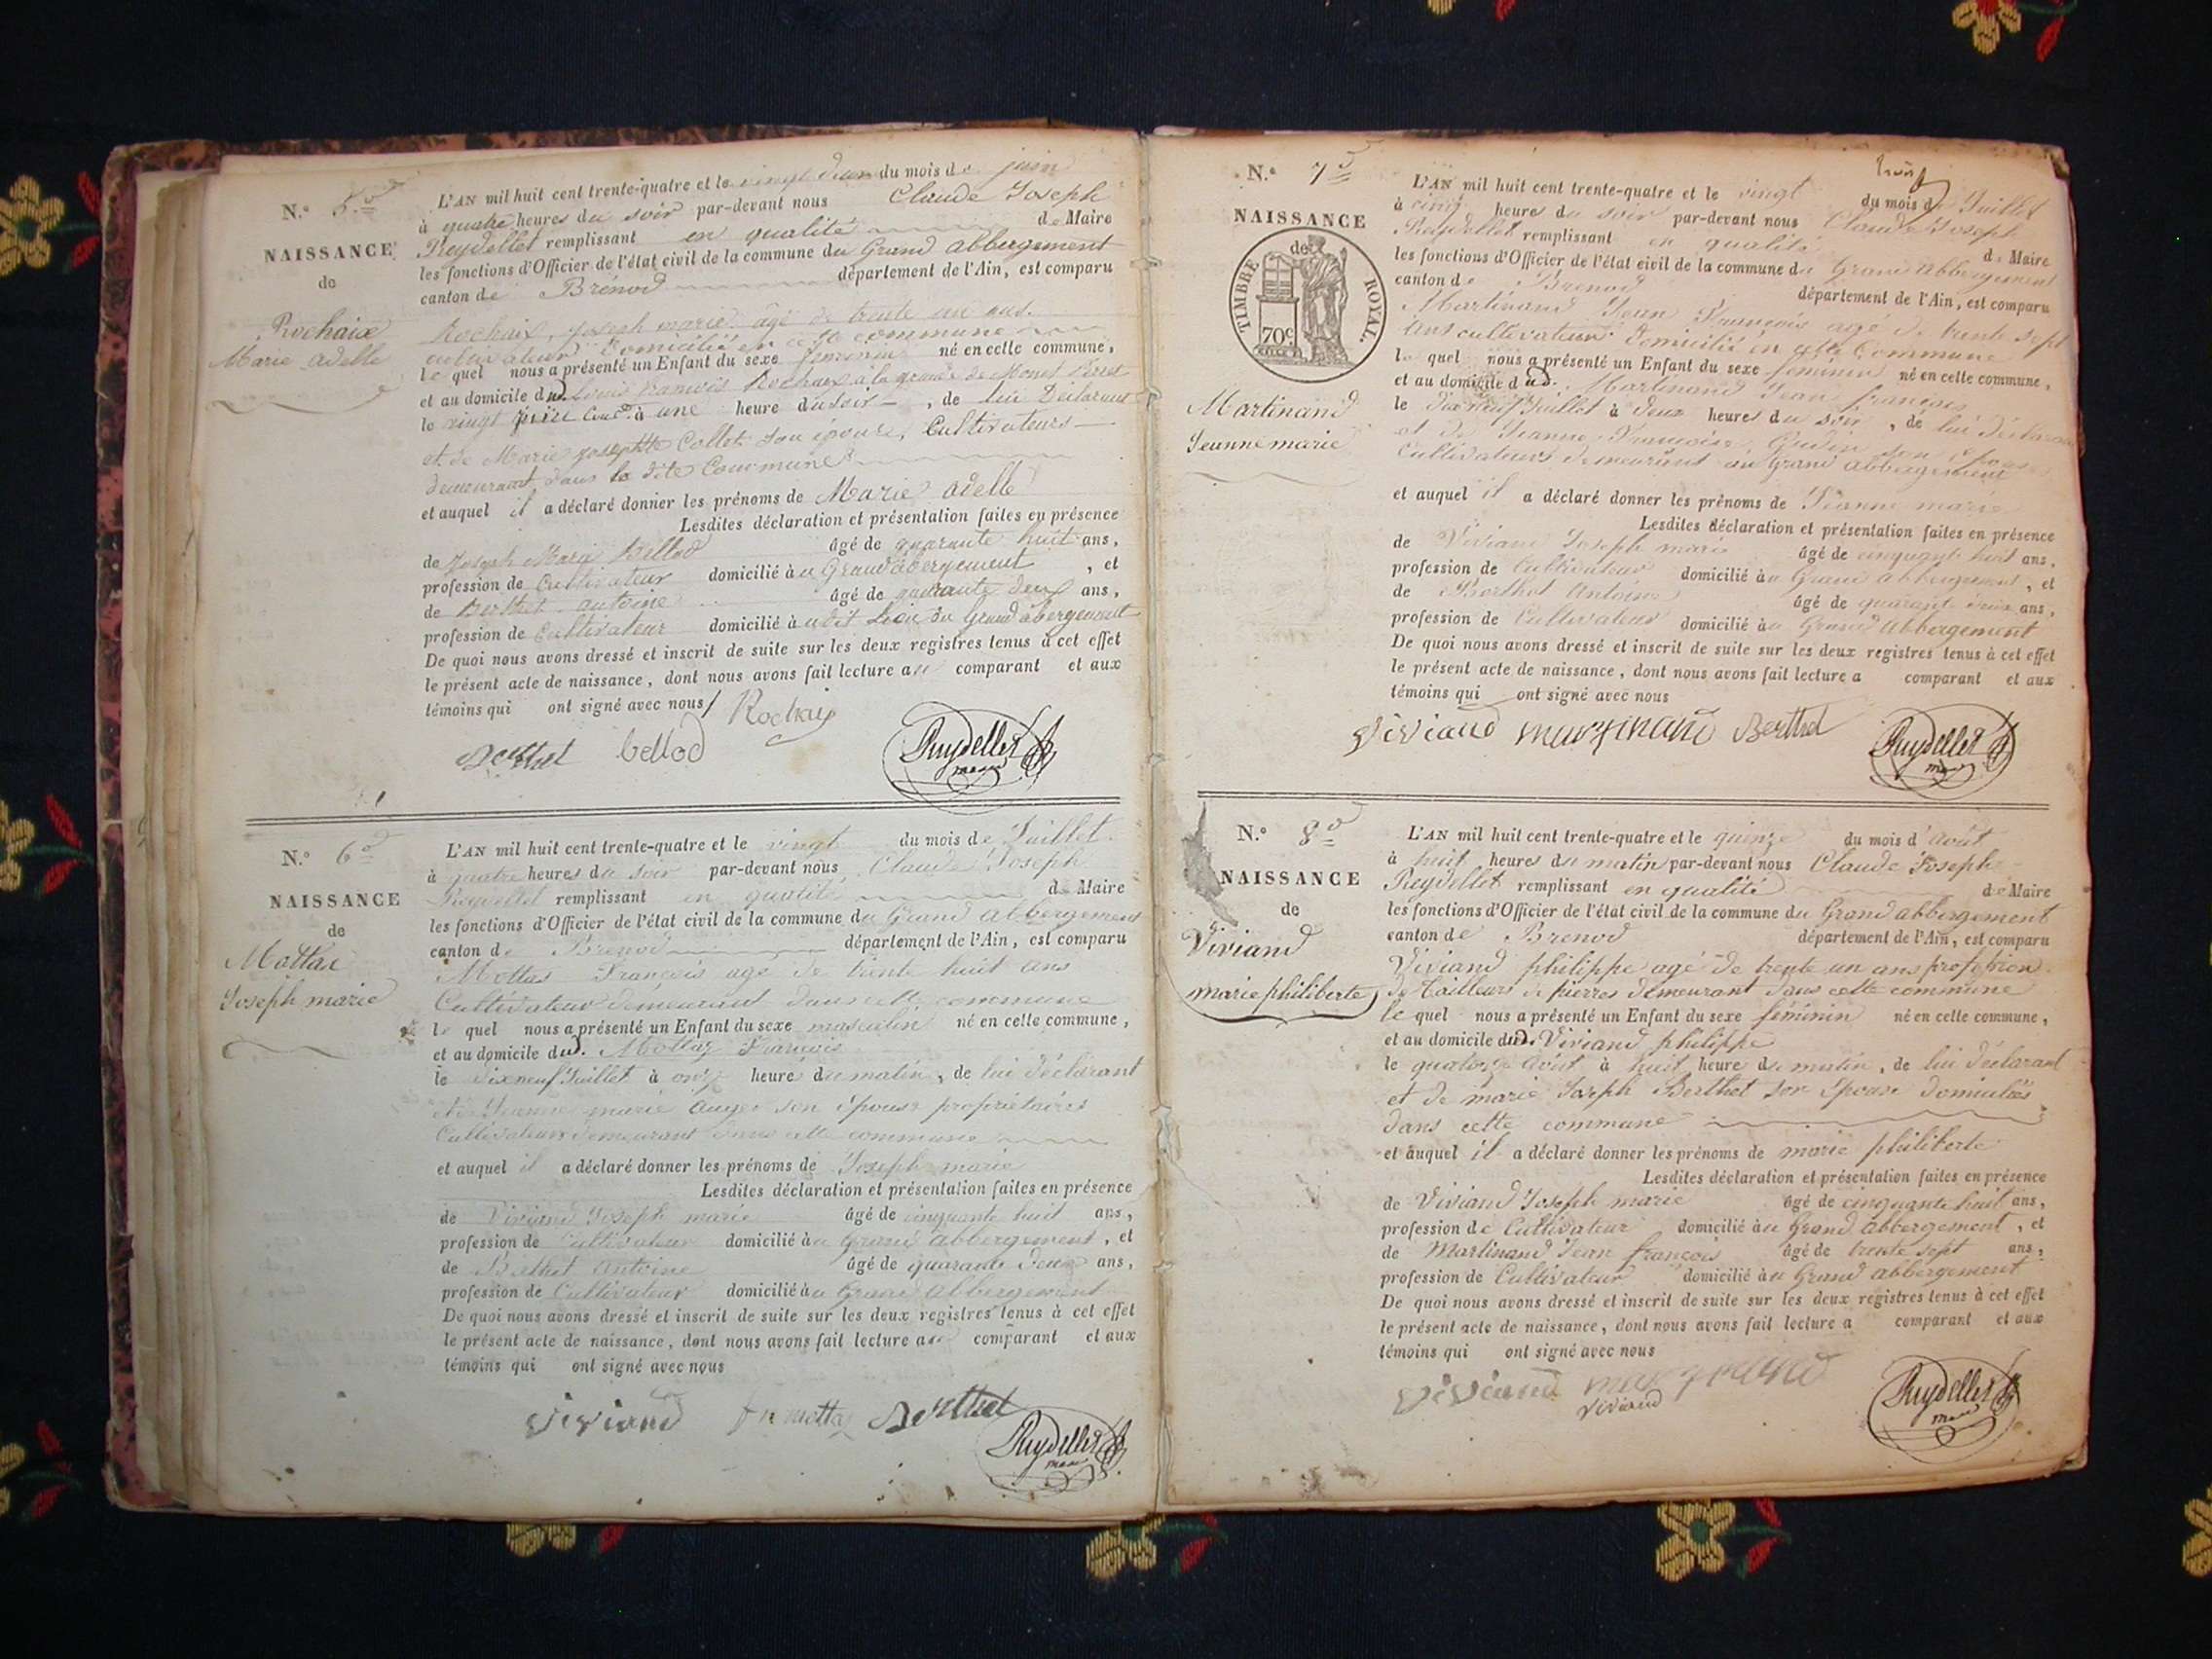 N.° 5.º
NAISSANCE
de
Rochaix
Marie adelle
L'AN mil huit cent trente-quatre et le vingt deux du mois de juin
à quatre heures du soir par-devant nous Claude Joseph
Reydellet remplissant en qualité de Maire
les fonctions d'Officier de l'état civil de la commune du Grand abbergement
canton de Brenod département de l'Ain, est comparu
Rochaix, joseph marie agé de trente un ans
cultivateur domicilié en cette commune
le quel nous a présenté un Enfant du sexe feminin né en cette commune,
et au domicile dud. Louis francois Rochaix à la grange de
le vingt juin à une heure du soir, de lui Déclarant
et de Marie josephte Collet son épouse, Cultivateurs
demeurant dans la dite Commune
et auquel il a déclaré donner les prénoms de Marie adelle
Lesdites déclaration et présentation faites en présence
de Joseph Marie Bellod âgé de quarante huit ans,
profession de Cultivateur domicilié au Grand abergement, et
de Berthet antoine âgé de quarante deux ans,
profession de Cultivateur domicilié à udit Lieu du Grand abergement
De quoi nous avons dressé et inscrit de suite sur les deux registres tenus à cet effet
le présent acte de naissance, dont nous avons fait lecture au comparant et aux
témoins qui ont signé avec nous / Rochaix
Berthet bellod Reydellet
maire
N.° 6º
NAISSANCE
de
Mottaz
Joseph marie
L'AN mil huit cent trente-quatre et le vingt du mois de Juillet
à quatre heures du soir par-devant nous Claude Joseph
Reydellet remplissant en qualité de Maire
les fonctions d'Officier de l'état civil de la commune du Grand abbergement
canton de Brenod département de l'Ain, est comparu
Mottaz François agé de trente huit ans
Cultivateur demeurant dans cette commune
le quel nous a présenté un Enfant du sexe masculin né en cette commune,
et au domicile dud. Mottaz François
le dixneuf Juillet à onze heures du matin, de lui déclarant
et de Jeanne marie Auger son épouse propriétaires
Cultivateurs demeurant dans cette commune
et auquel il a déclaré donner les prénoms de Joseph marie
Lesdites déclaration et présentation faites en présence
de Viviand Joseph marie âgé de cinquante huit ans,
profession de Cultivateur domicilié au Grand abbergement, et
de Berthet antoine âgé de quarante deux ans,
profession de Cultivateur domicilié au Grand abbergement
De quoi nous avons dressé et inscrit de suite sur les deux registres tenus à cet effet
le présent acte de naissance, dont nous avons fait lecture au comparant et aux
témoins qui ont signé avec nous
viviand fr mottaz Berthet Reydellet
maire
N.° 7º
NAISSANCE
de
TIMBRE ROYAL
70c
Martinand
Jeanne marie
L'AN mil huit cent trente-quatre et le vingt du mois de Juillet
à cinq heures du soir par-devant nous Claude Joseph
Reydellet remplissant en qualité de Maire
les fonctions d'Officier de l'état civil de la commune du Grand abbergement
canton de Brenod département de l'Ain, est comparu
Martinand Jean François agé de trente sept
ans cultivateur domicilié en cette Commune
le quel nous a présenté un Enfant du sexe féminin né en cette commune,
et au domicile dud. Martinand Jean françois
le dixneuf Juillet à deux heures du soir, de lui déclarant
et de Jeanne Françoise son épouse
Cultivateurs demeurant au Grand abbergement
et auquel il a déclaré donner les prénoms de Jeanne marie
Lesdites déclaration et présentation faites en présence
de Viviand Joseph marie âgé de cinquante huit ans,
profession de Cultivateur domicilié au Grand abbergement, et
de Berthet Antoine âgé de quarante deux ans,
profession de Cultivateur domicilié au Grand abbergement
De quoi nous avons dressé et inscrit de suite sur les deux registres tenus à cet effet
le présent acte de naissance, dont nous avons fait lecture a comparant et aux
témoins qui ont signé avec nous
viviand martinand Berthet Reydellet
maire
N.° 8º
NAISSANCE
de
Viviand
marie philiberte
L'AN mil huit cent trente-quatre et le quinze du mois d'Août
à huit heures du matin par-devant nous Claude Joseph
Reydellet remplissant en qualité de Maire
les fonctions d'Officier de l'état civil de la commune du Grand abbergement
canton de Brenod département de l'Ain, est comparu
Viviand philippe agé de trente un ans profession
de tailleurs de pierres demeurant dans cette commune
le quel nous a présenté un Enfant du sexe féminin né en cette commune,
et au domicile dud. Viviand philippe
le quatorze Août à huit heure du matin, de lui déclarant
et de marie Joseph Berthet son Epouse domiciliés
dans cette commune
et auquel il a déclaré donner les prénoms de marie philiberte
Lesdites déclaration et présentation faites en présence
de Viviand Joseph marie âgé de cinquante huit ans,
profession de Cultivateur domicilié au Grand abbergement, et
de Martinand Jean françois âgé de trente sept ans,
profession de Cultivateur domicilié au Grand abbergement
De quoi nous avons dressé et inscrit de suite sur les deux registres tenus à cet effet
le présent acte de naissance, dont nous avons fait lecture a comparant et aux
témoins qui ont signé avec nous
viviand martinand Reydellet
viviand maire